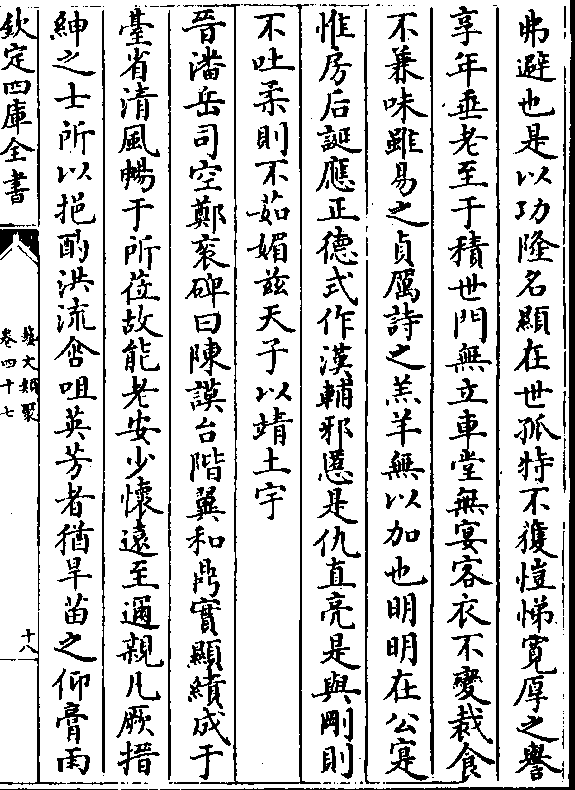 弗避也是以功隆名顯在世孤特不獲愷悌寛厚之譽
享年垂老至于積世門無立車堂無宴客衣不變裁食
不兼味雖易之貞厲詩之羔羊無以加也明明在公寔
惟房后誕應正德式作漢輔邪慝是仇直亮是與剛則
不吐柔則不茹媚兹天子以靖土宇
晉潘岳司空鄭袤碑曰陳謨台階翼和鼎實顯績成于
臺省清風暢于所莅故能老安少懷遠至邇親凡厥搢
紳之士所以挹酌洪流含咀英芳者猶旱苗之仰膏雨
欽定四庫全書
藝文類聚
卷四十七
十八